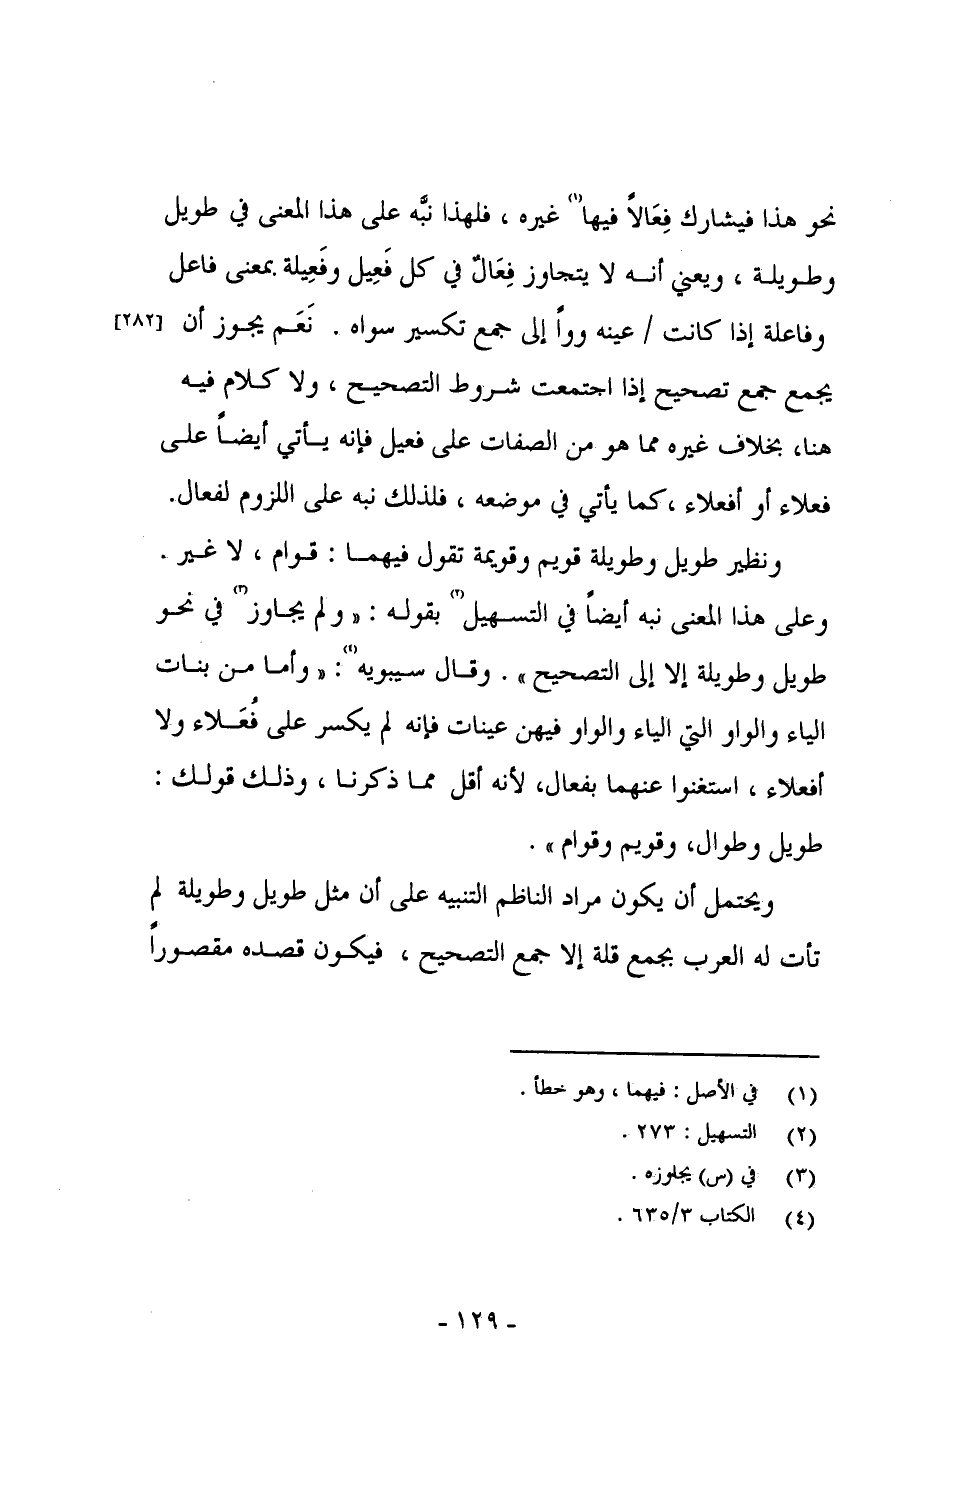 نحو هذا فيشارك فِعَالاً فيها(١) غيره ، فلهذا نبَّه على هذا المعنى في طويل
وطويلة ، ويعني أنه لا يتجاوز فِعَالٌ في كل فَعِيل وفَعِيلة بمعنى فاعل
وفاعلة إذا كانت / عينه وواً إلى جمع تكسير سواه . نَعَم يجوز أن [٢٨٢]
يجمع جمع تصحيح إذا اجتمعت شروط التصحيح ، ولا كلام فيه
هنا، بخلاف غيره مما هو من الصفات على فعيل فإنه يأتي أيضاً على
فعلاء أو أفعلاء ، كما يأتي في موضعه ، فلذلك نبه على اللزوم لفعال.
ونظير طويل وطويلة قويم وقويمة تقول فيهما : قوام ، لا غير .
وعلى هذا المعنى نبه أيضاً في التسهيل(٢) بقوله : « ولم يجاوز(٣) في نحو
طويل وطويلة إلا إلى التصحيح » . وقال سيبويه(٤): « وأما من بنات
الياء والواو التي الياء والواو فيهن عينات فإنه لم يكسر على فُعَلاء ولا
أفعلاء ، استغنوا عنهما بفعال، لأنه أقل مما ذكرنا ، وذلك قولك :
طويل وطوال، وقويم وقوام » .
ويحتمل أن يكون مراد الناظم التنبيه على أن مثل طويل وطويلة لم
تأت له العرب بجمع قلة إلا جمع التصحيح ، فيكون قصده مقصوراً
(١) في الأصل : فيهما ، وهو خطأ .
(٢) التسهيل : ٢٧٣ .
(٣) في (س) يجلوزه .
(٤) الكتاب ٦٣٥/٣ .
- ١٢٩ -